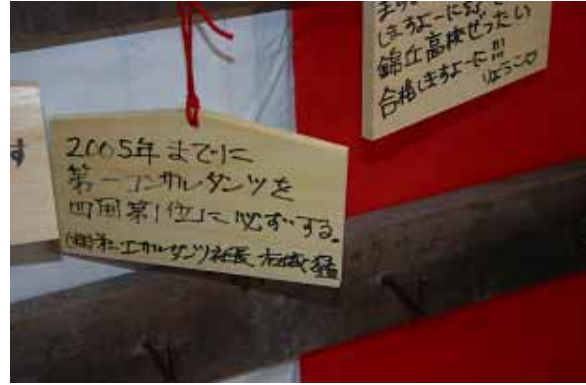 2005年までに
第一コンサルタンツを
四国第1位に必ずする。
(株)第一コンサルタンツ社長 右城猛
しますよーに
錦丘高校ぜったい
合格しますよーに!!!
りょうこ♡
す